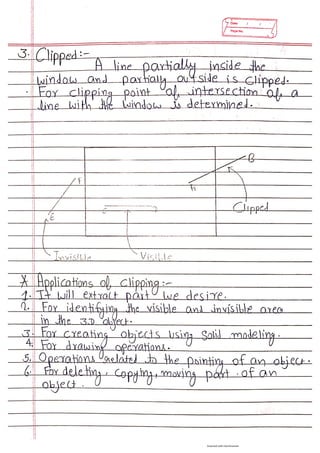 Date
Page No.
3. Clipped :-
A line partially inside the
window and partially outside is clipped.
· For clipping point of intersection of a
line with the window is determined.
B
F
A
E
Clipped
Invisible Visible
* Applications of clipping :-
1. It will extract part we desire.
2. For identifying the visible and invisible area
in the 3D object.
3. For creating objects using solid modeling.
4. For drawing operations.
5. Operations related to the pointing of an object.
6. For deleting, copying, moving part of an
object.
Scanned with CamScanner